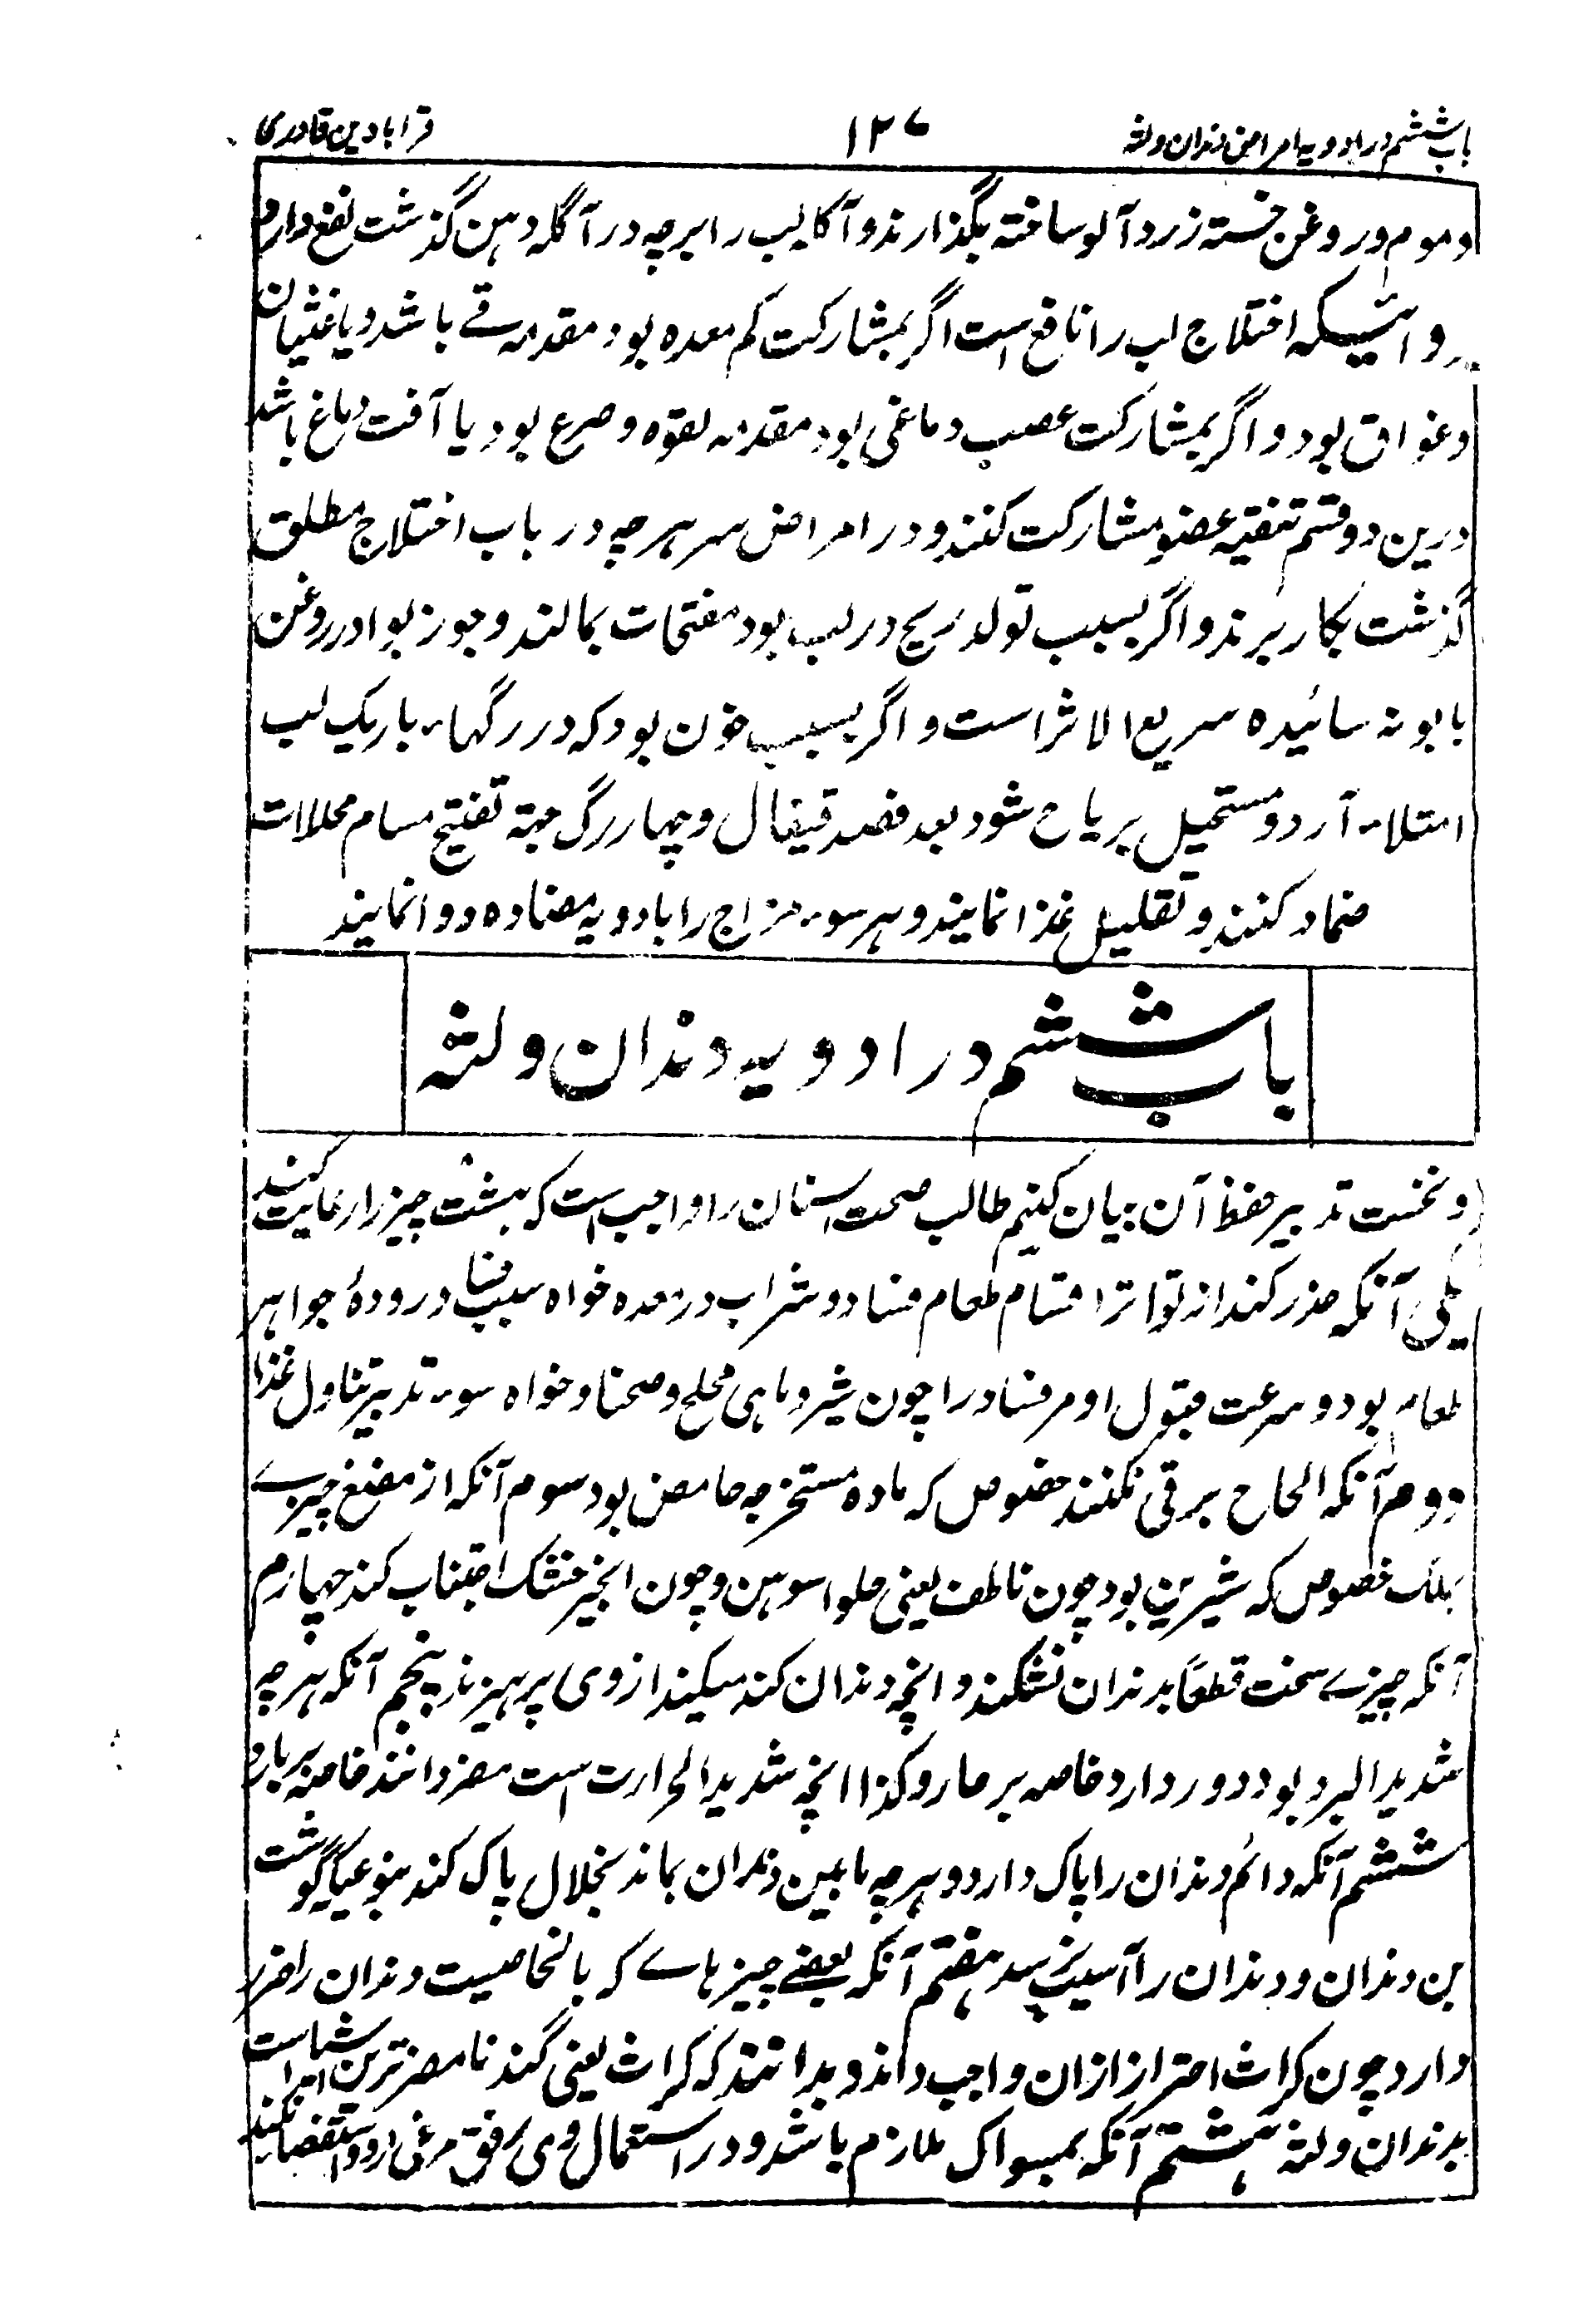 باب ششم در ادویه امراض دندان و لثه
۱۲۷
قرابادین قادری
و موم و روغن خسته زرد آلو ساخته بگذارند و آکله لب را هرچه در آکله دهن گذشت نفع دارد
و ادویه اختلاج لب را نافع است اگر بمشارکت فم معده بود مقدمه قے باشد و یا غثیان
و فواق بود و اگر بمشارکت عصب دماغی بود مقدمه لقوه و صرع بود یا آفت دماغ باشد
درین دو قسم تنقیه عضو مشارکت کنند و در امراض سر هرچه در باب اختلاج مطلق
گذشت بکار برند و اگر بسبب تولد ریح در لب بود مفتحات بمالند و جوز بوا در روغن
بابونه سائیده سریع الاثر است و اگر بسبب خون بود که در رگهاء باریک لب
امتلاء آرد و مستحیل بریاح شود بعد فصد قیفال و چهار رگ جهة تفتیح مسام محللات
ضماد کنند و تقلیل غذا نمایند و هر سوء مزاج را بادویه مضاده دوا نمایند
باب ششم در ادویه دندان و لثه
و نخست تدبیر حفظ آن بیان کنیم طالب صحت اسنان را واجب است که هشت چیز را رعایت کند
یکی آنکه حذر کند از تواتر اقسام طعام فساد و شراب در معده خواه سبب فساد رودۀ جواهر
طعام بود و سرعت قبول او مر فساد را چون شیر و ماهی مملح و صحنا و خواه سوء تدبیر تناول غذا
دوم آنکه الحاح بر قی نکنند خصوص که ماده مستخرجه حامض بود سوم آنکه از مضغ چیزے
علک خصوص که شیرین بود چون ناطف یعنی حلوا سوهن و چون انجیر خشک اجتناب کند چهارم
آنکه چیزے سخت قطعاً بدندان نشکند و انچه دندان کند میکند از وی پرهیزند پنجم آنکه هرچه
شدید البرد بود دور دارد خاصه بر حار و کذا انچه شدید الحرارت است مضر دانند خاصه بر بارد
ششم آنکه دائم دندان را پاک دارد و هرچه مابین دندان بماند بخلال پاک کند بنوعیکه گوشت
بن دندان و دندان را آسیب نرسد هفتم آنکه بعضے چیزهاے که بالخاصیت دندان را ضرر
دارد چون کراث احتراز ازان واجب داند و بدانند که کراث یعنی گندنا مضرترین اشیا است
بدندان و لثه هشتم آنکه بمسواک ملازم باشد و در استعمال وی رفق مرعی دارد و استقصا نکند